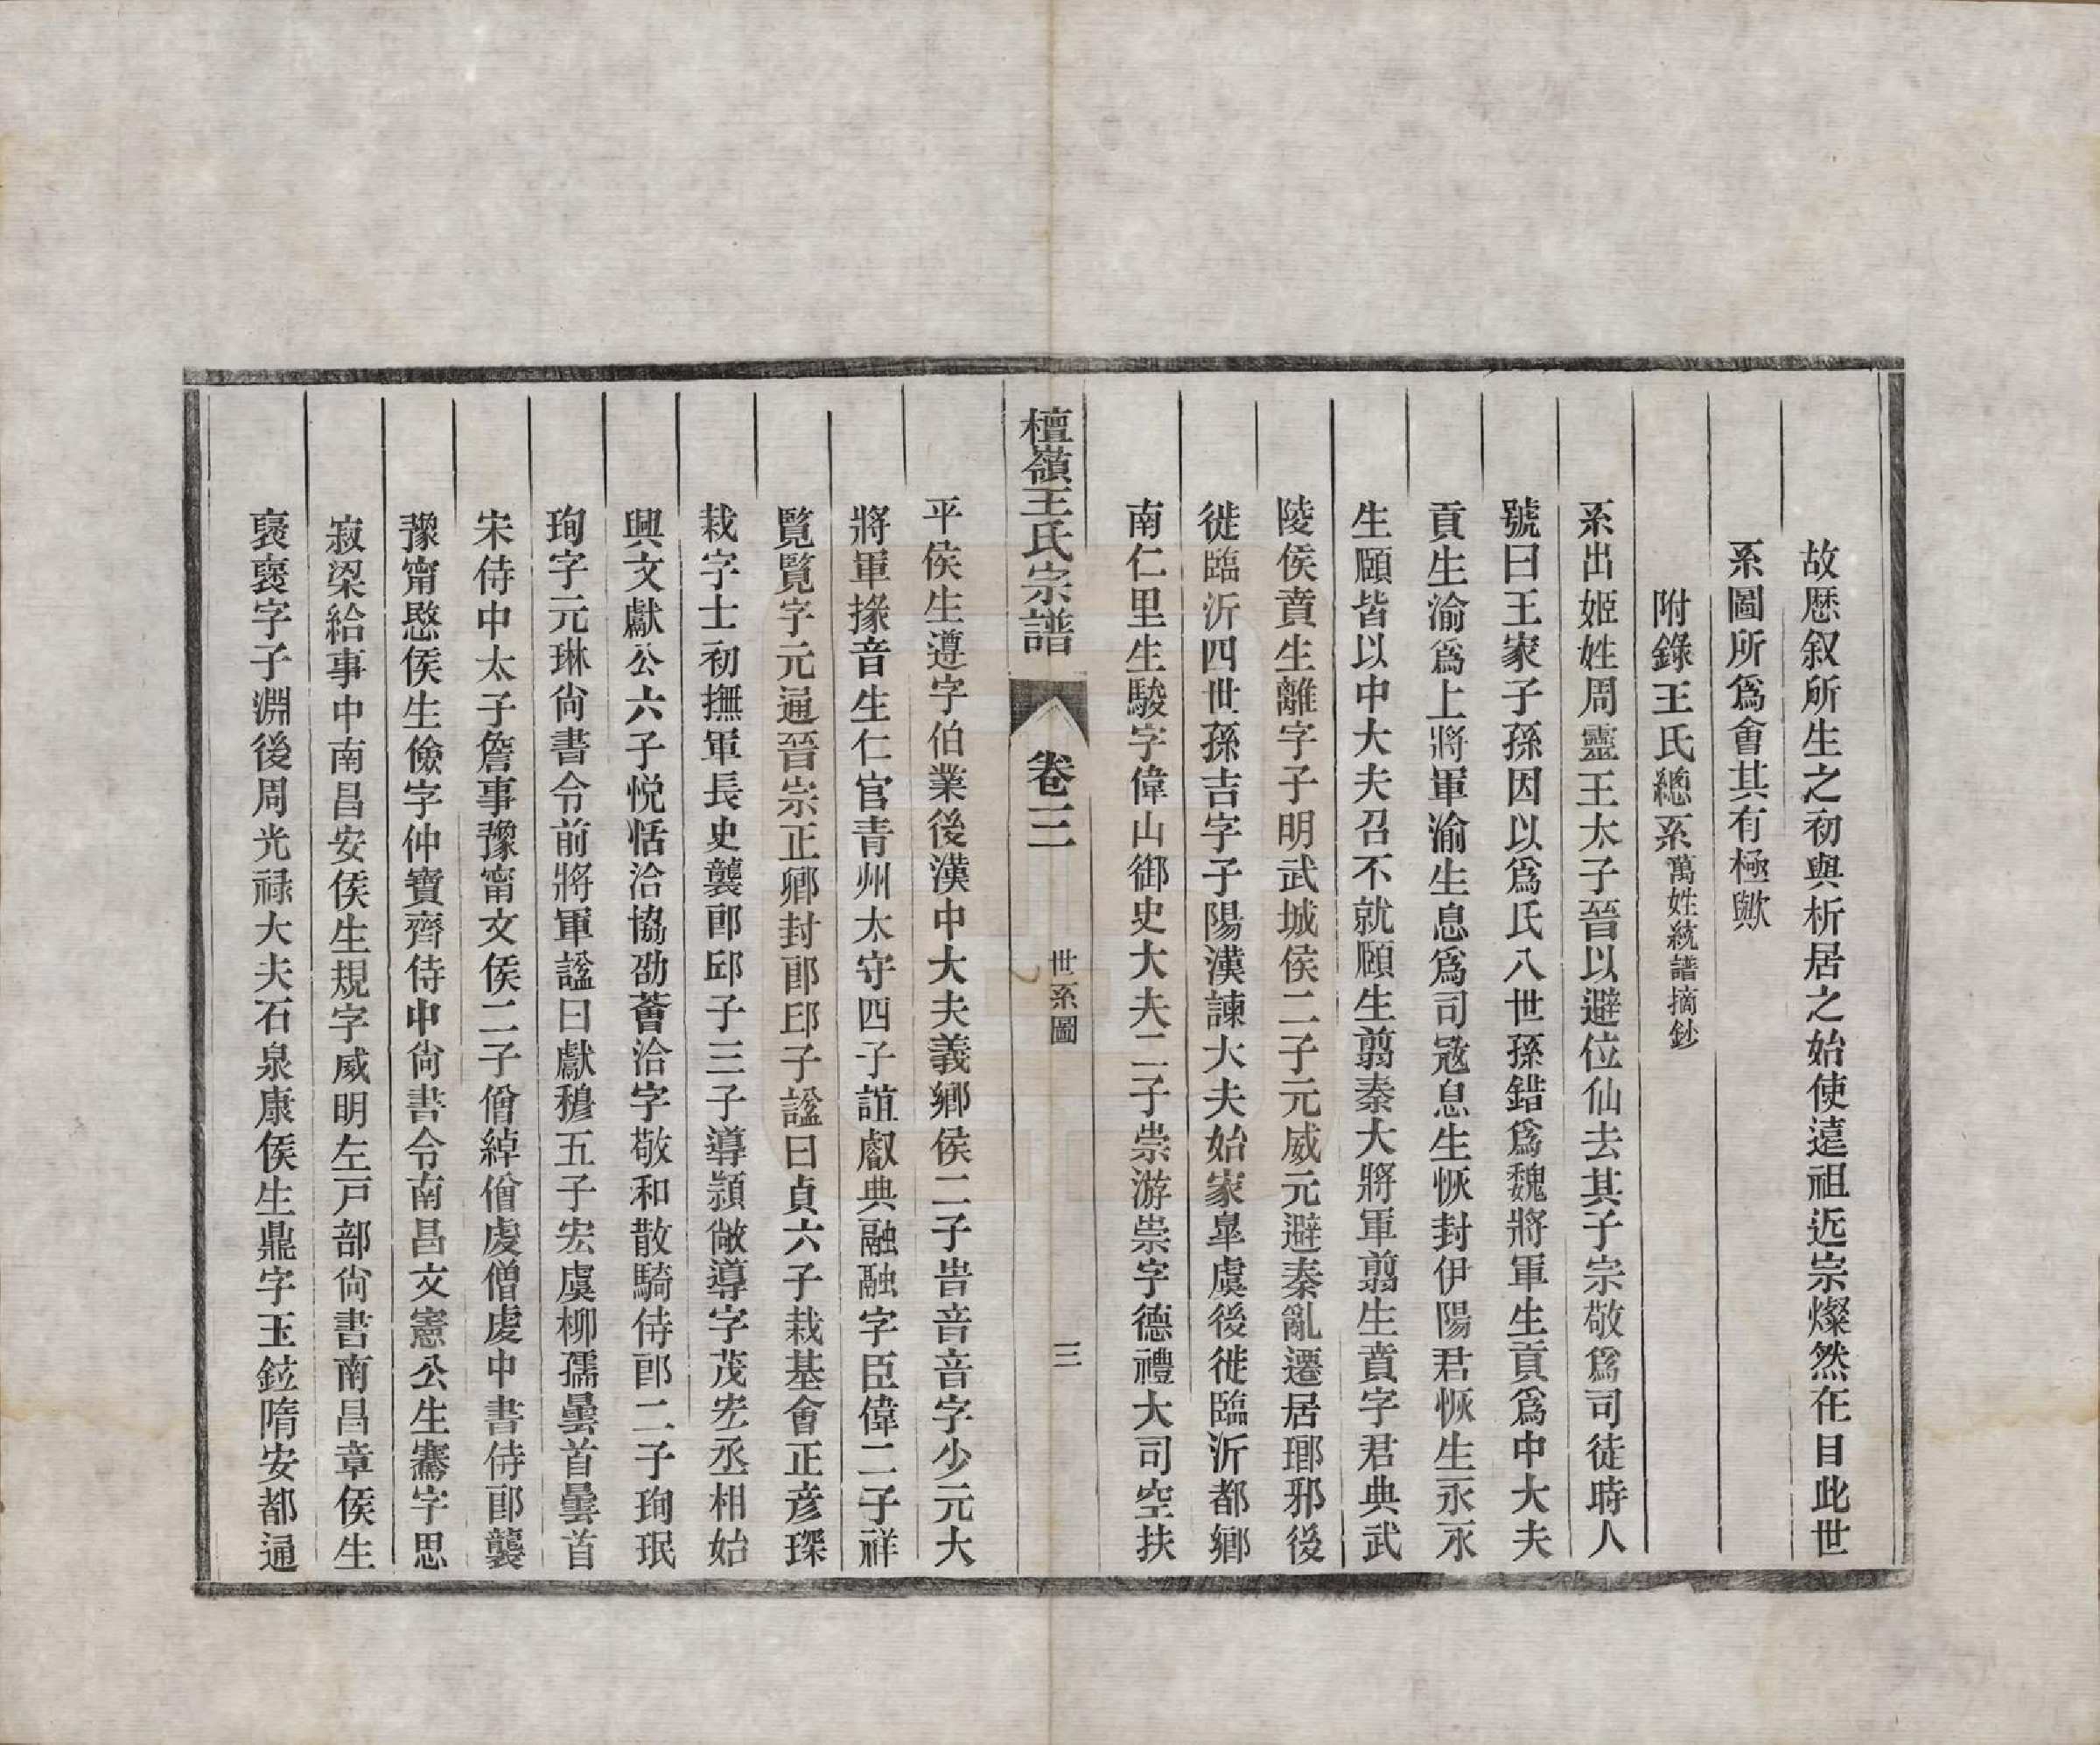 故厯叙所生之初與析居之始使遠祖近宗燦然在目此世
系圖所爲會其有極歟
附錄王氏總系萬姓統譜摘鈔
系出姬姓周靈王太子晉以避位仙去其子宗敬爲司徒時人
號曰王家子孫因以爲氏八世孫錯爲魏將軍生賁爲中大夫
賁生渝爲上將軍渝生息爲司寇息生恢封伊陽君恢生永永
生頤皆以中大夫召不就頤生翦秦大將軍翦生賁字君典武
陵侯賁生離字子明武城侯二子元威元避秦亂遷居瑯邪後
徙臨沂四世孫吉字子陽漢諫大夫始家皐虞後徙臨沂都鄉
南仁里生駿字偉山御史大夫二子崇游崇字德禮大司空扶
檀嶺王氏宗譜
卷三
世系圖
三
平侯生遵字伯業後漢中大夫義鄉侯二子旹音音字少元大
將軍掾音生仁官青州太守四子誼叡典融融字臣偉二子祥
覽覽字元通晉宗正卿封郎邱子諡曰貞六子栽基會正彥琛
栽字士初撫軍長史襲郎邱子三子導潁敞導字茂宏丞相始
興文獻公六子悅恬洽協劭薈洽字敬和散騎侍郎二子珣珉
珣字元琳尙書令前將軍諡曰獻穆五子宏虞柳孺曇首曇首
宋侍中太子詹事豫甯文侯二子僧綽僧虔僧虔中書侍郎襲
豫甯愍侯生儉字仲寶齊侍中尙書令南昌文憲公生騫字思
寂梁給事中南昌安侯生規字威明左戸部尙書南昌章侯生
襃襃字子淵後周光祿大夫石泉康侯生鼎字玉鉉隋安都通